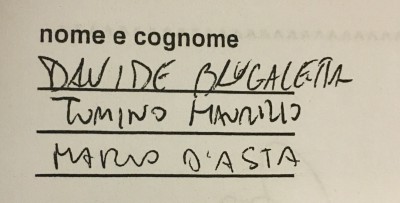 nome e cognome
DAVIDE BRUGALETTA
TUMINO MAURIZIO
MARIO D'ASTA